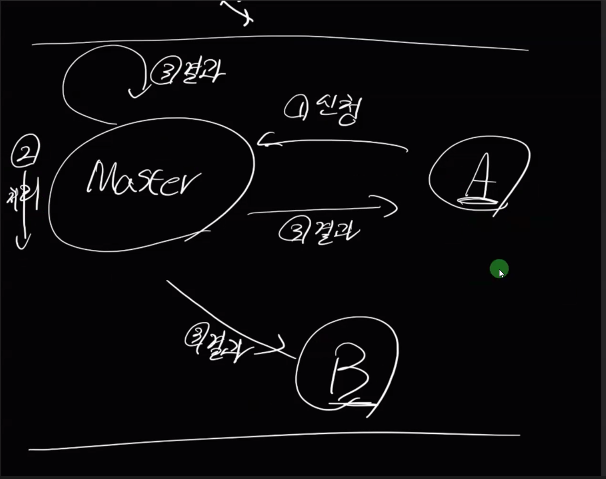 ③ 결과
① 신청
②
처리
Master
A
③ 결과
③ 결과
B